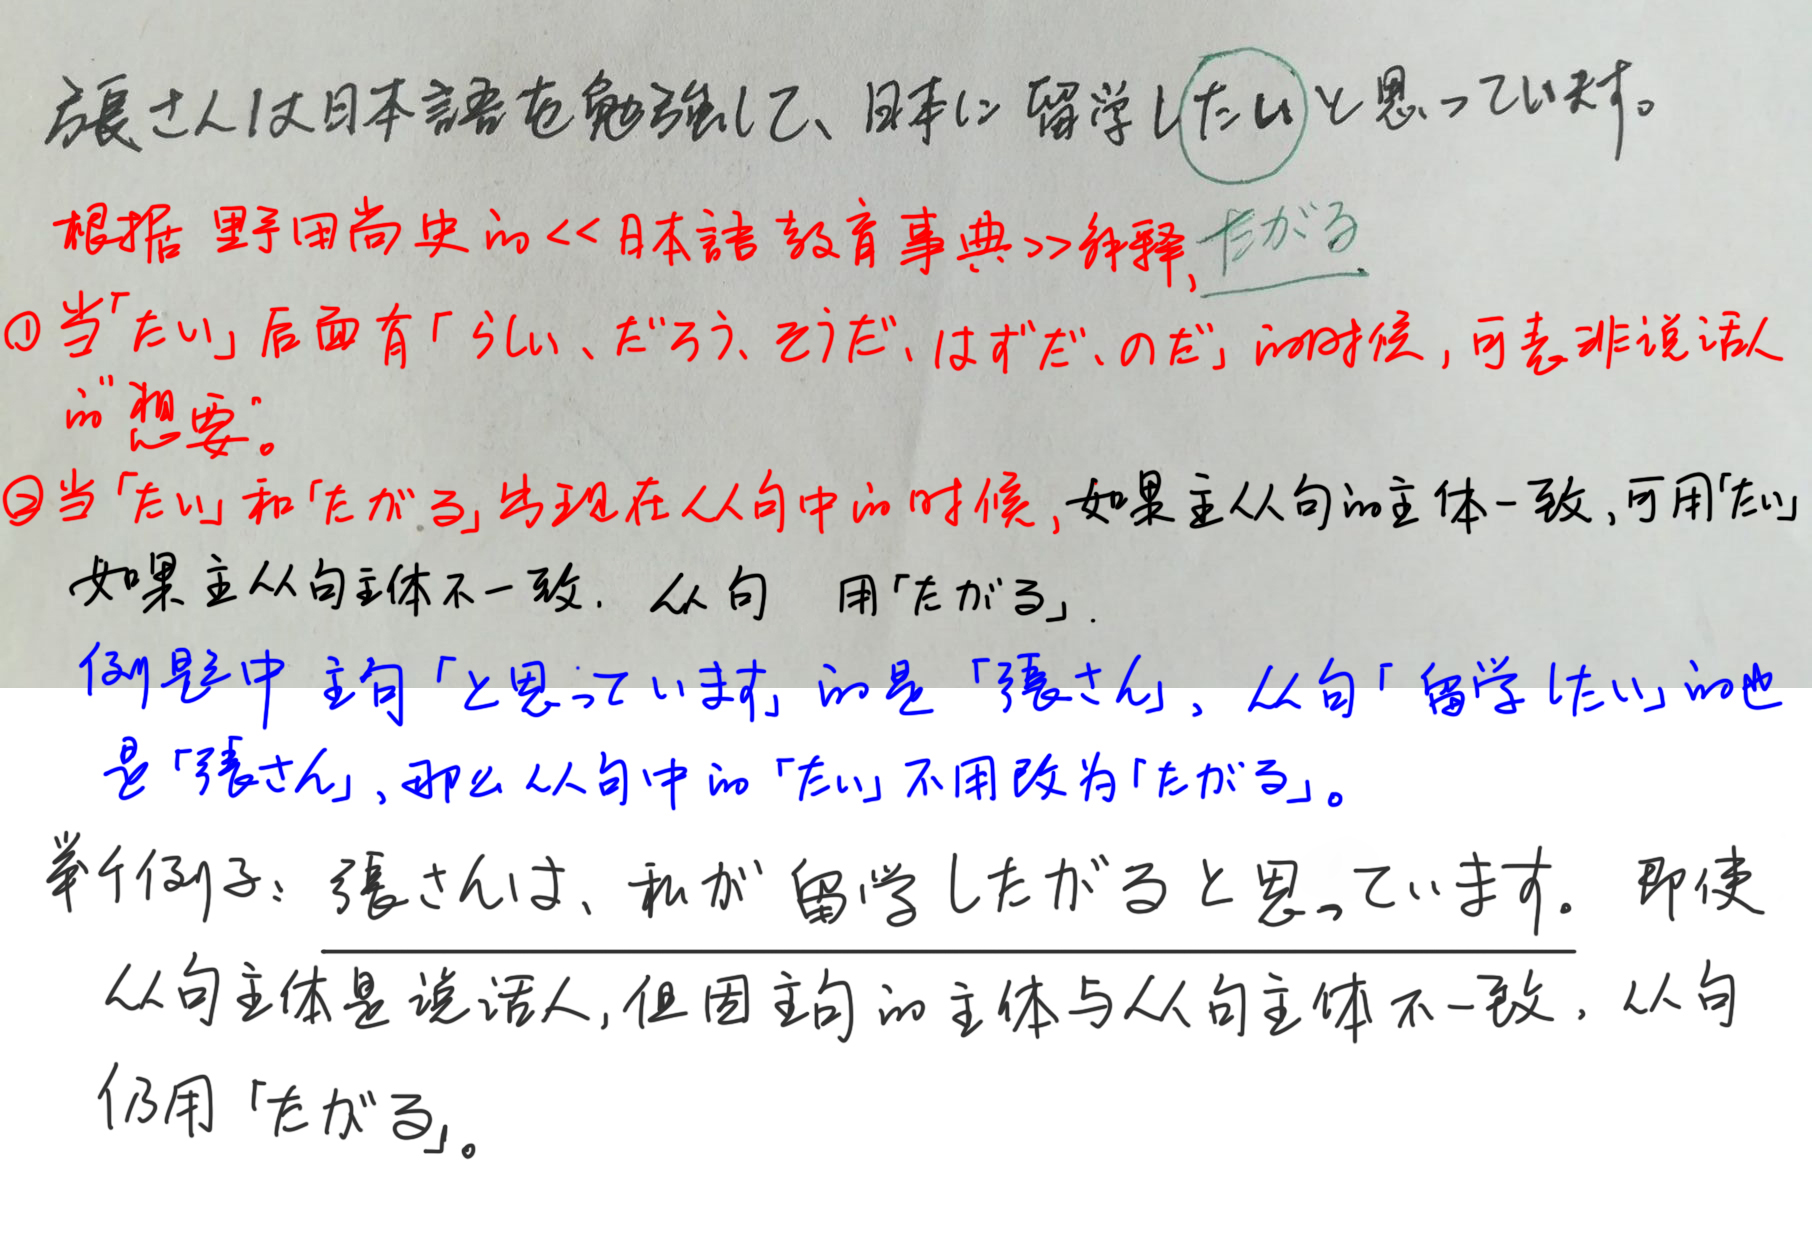 張さんは日本語を勉強して、日本に留学したいと思っています。
根据野田尚史的<<日本語教育事典>>解释,
たがる
①当「たい」后面有「らしい、だろう、そうだ、はずだ、のだ」的时候,可表非说话人
的"想要"。
②当「たい」和「たがる」出现在从句中的时候,如果主从句的主体一致,可用「たい」
如果主从句主体不一致. 从句 用「たがる」.
例题中 主句「と思っています」的是「張さん」、从句「留学したい」的也
是「張さん」、那么从句中的「たい」不用改为「たがる」。
举个例子: 張さんは、私が留学したがると思っています。 即使
从句主体是说话人,但因主句的主体与从句主体不一致, 从句
仍用「たがる」。